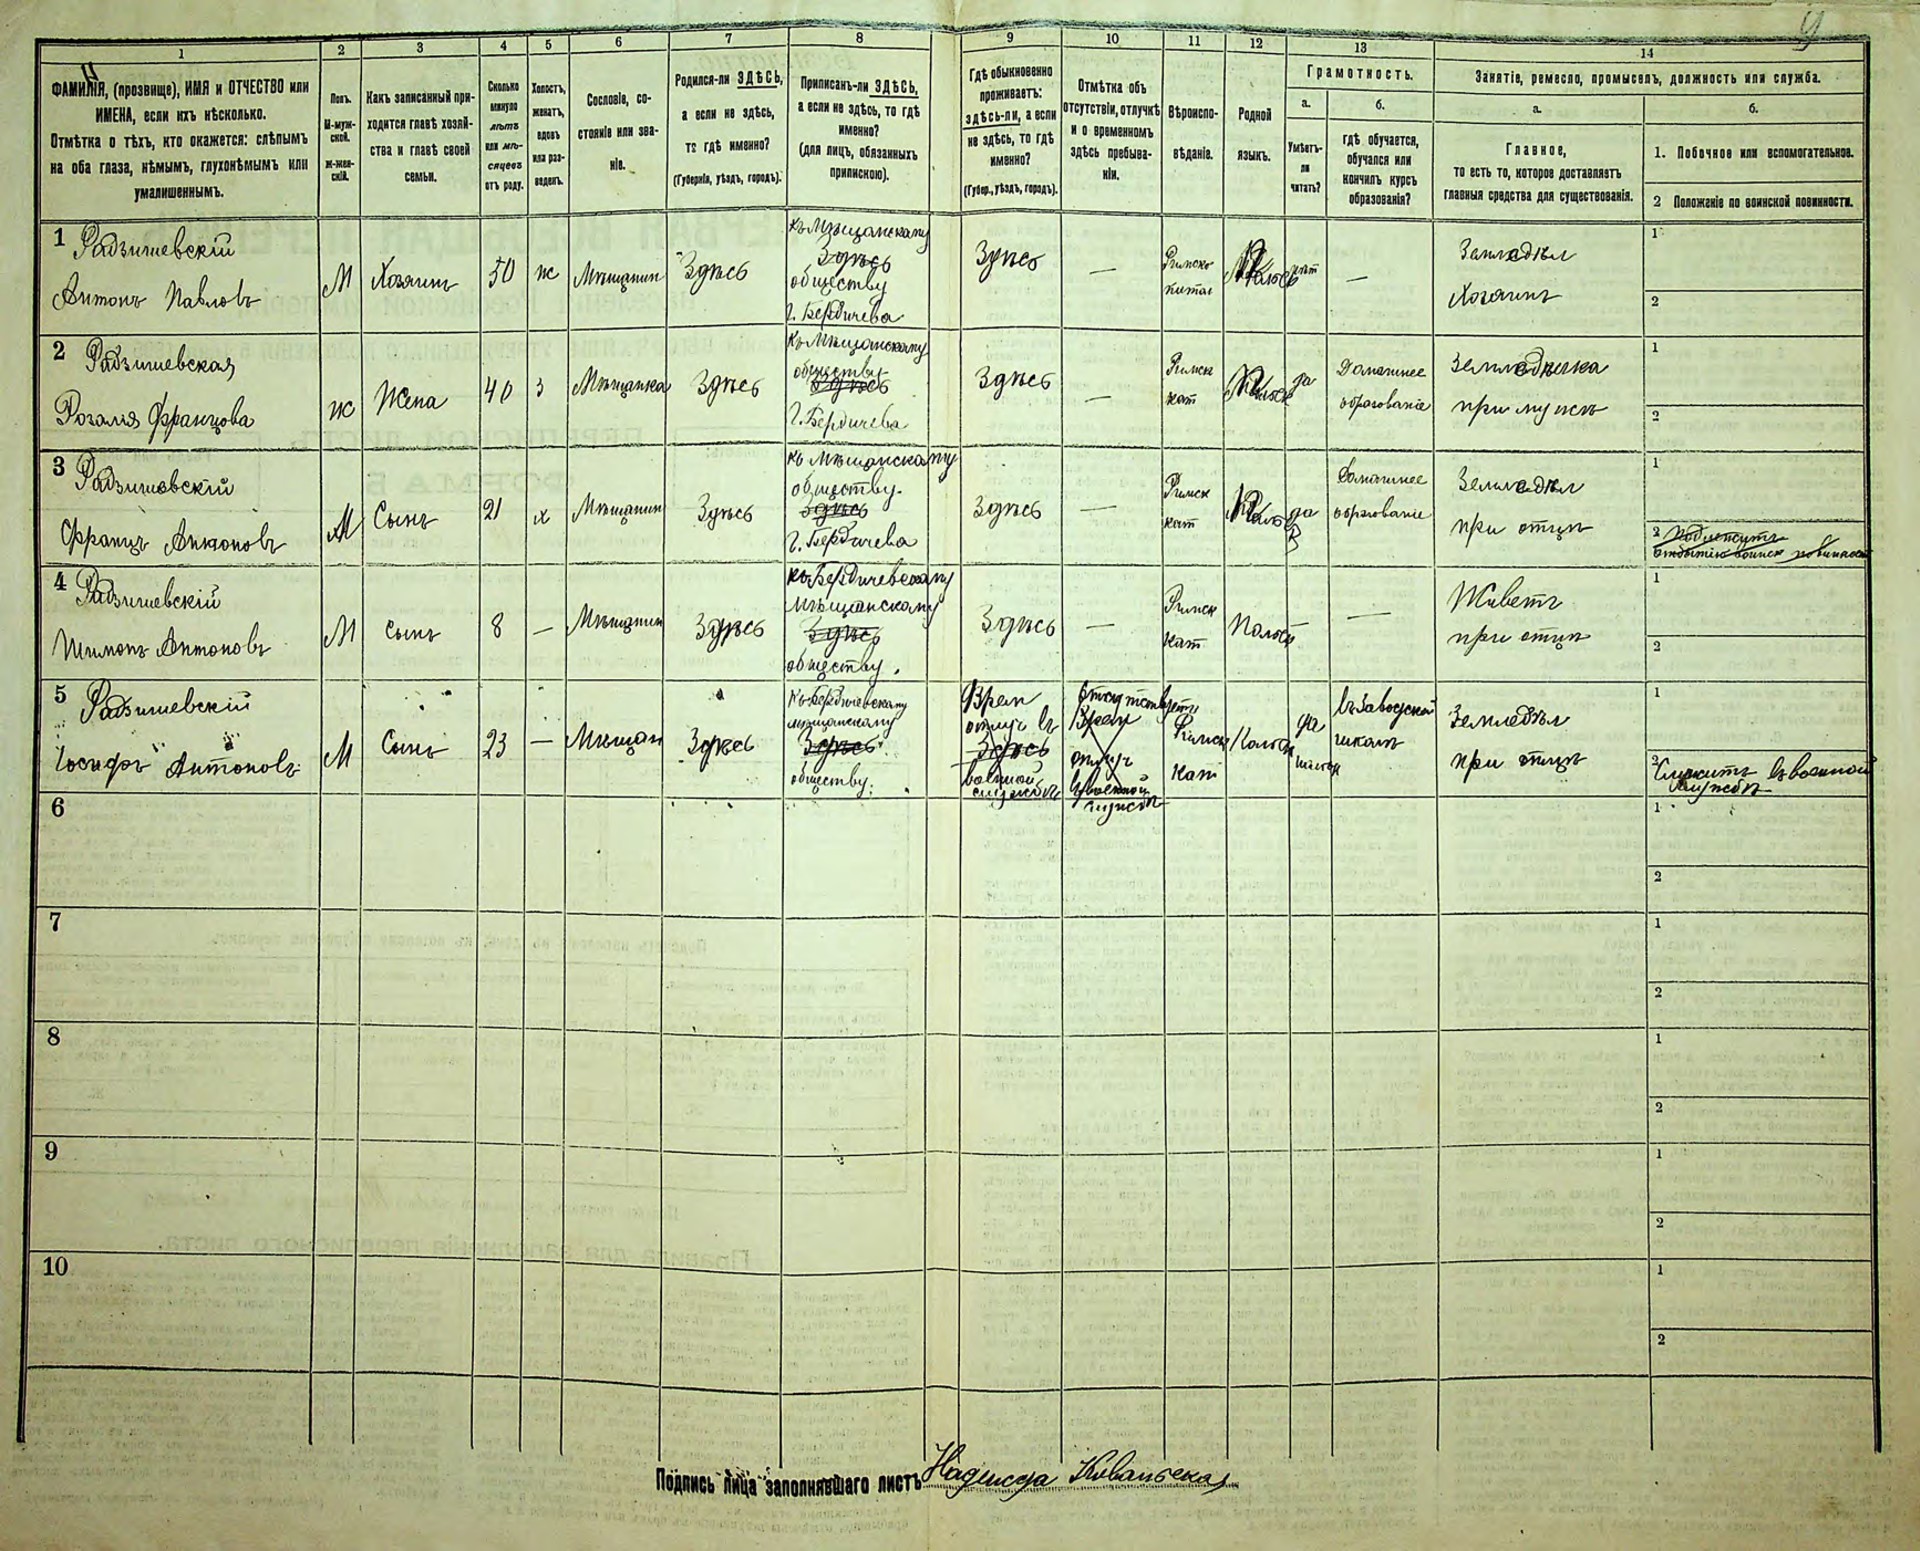 9
1
2
3
4
5
6
7
8
9
10
11
12
13
14
ФАМИЛІЯ, (прозвище), ИМЯ и ОТЧЕСТВО или
ИМЕНА, если ихъ нѣсколько.
Отмѣтка о тѣхъ, кто окажется: слѣпымъ
на оба глаза, нѣмымъ, глухонѣмымъ или
умалишеннымъ.
Полъ.
М-муж-
ской.
ж-жен-
скій.
Какъ записанный при-
ходится главѣ хозяй-
ства и главѣ своей
семьи.
Сколько
минуло
лѣтъ
или мѣ-
сяцевъ
отъ роду.
Холостъ,
женатъ,
вдовъ
или раз-
веденъ.
Сословіе, со-
стояніе или зва-
ніе.
Родился-ли ЗДѢСЬ,
а если не здѣсь,
то гдѣ именно?
(Губернія, уѣздъ, городъ).
Приписанъ-ли ЗДѢСЬ,
а если не здѣсь, то гдѣ
именно?
(для лицъ, обязанныхъ
припискою).
Гдѣ обыкновенно
проживаетъ:
здѣсь-ли, а если
не здѣсь, то гдѣ
именно?
(Губер., уѣздъ, городъ).
Отмѣтка объ
отсутствіи, отлучкѣ
и о временномъ
здѣсь пребыва-
ніи.
Вѣроиспо-
вѣданіе.
Родной
языкъ.
Грамотность.
а.
Умѣетъ-
ли
читать?
б.
гдѣ обучается,
обучался или
кончилъ курсъ
образованія?
Занятіе, ремесло, промыселъ, должность или служба.
а.
Главное,
то есть то, которое доставляетъ
главныя средства для существованія.
б.
1. Побочное или вспомогательное.
2 Положеніе по воинской повинности.
1 Радзишевскій
Антонъ Павловъ
М
Хозяинъ
50
ж
Мѣщанин
Здѣсь
къ Мѣщанскому
Здѣсь
обществу
г. Бердичева
Здѣсь
—
Римско
катол
Польск
нѣт
—
Земледѣл
Хозяинъ
1
2
2 Радзишевская
Розалія Францова
ж
Жена
40
з
Мѣщанка
Здѣсь
къ Мѣщанскому
обществу
Здѣсь
г. Бердичева
Здѣсь
—
Римск
кат
Польск
да
Домашнее
образованіе
Земледѣлка
при мужѣ
1
2
3 Радзишевскій
Францъ Антоновъ
М
Сынъ
21
х
Мѣщанин
Здѣсь
къ Мѣщанскому
обществу
Здѣсь
г. Бердичева
Здѣсь
—
Римск
кат
Польс
да
Домашнее
образованіе
Земледѣл
при отцѣ
1
2 Подлежитъ
отбытію воинск повинност
4 Радзишевскій
Шимонъ Антоновъ
М
Сынъ
8
—
Мѣщанин
Здѣсь
къ Бердичевскому
мѣщанскому
Здѣсь
обществу.
Здѣсь
—
Римск
кат
Польс
—
—
Живетъ
при отцѣ
1
2
5 Радзишевскій
Іосифъ Антоновъ
М
Сынъ
23
—
Мѣщан
Здѣсь
къ Бердичевскому
мѣщанскому
Здѣсь
обществу.
Врем
отлуч въ
Здѣсь
военной
службѣ
отсутствуетъ
Врем
отлуч
въ военной
службѣ
Римск
кат
Польск
да
въ Заводской
школѣ
Земледѣл
при отцѣ
1
2 Служитъ въ военной
службѣ
6
1
2
7
1
2
8
1
2
9
1
2
10
1
2
Подпись лица заполнявшаго листъ Надежда Ковальская